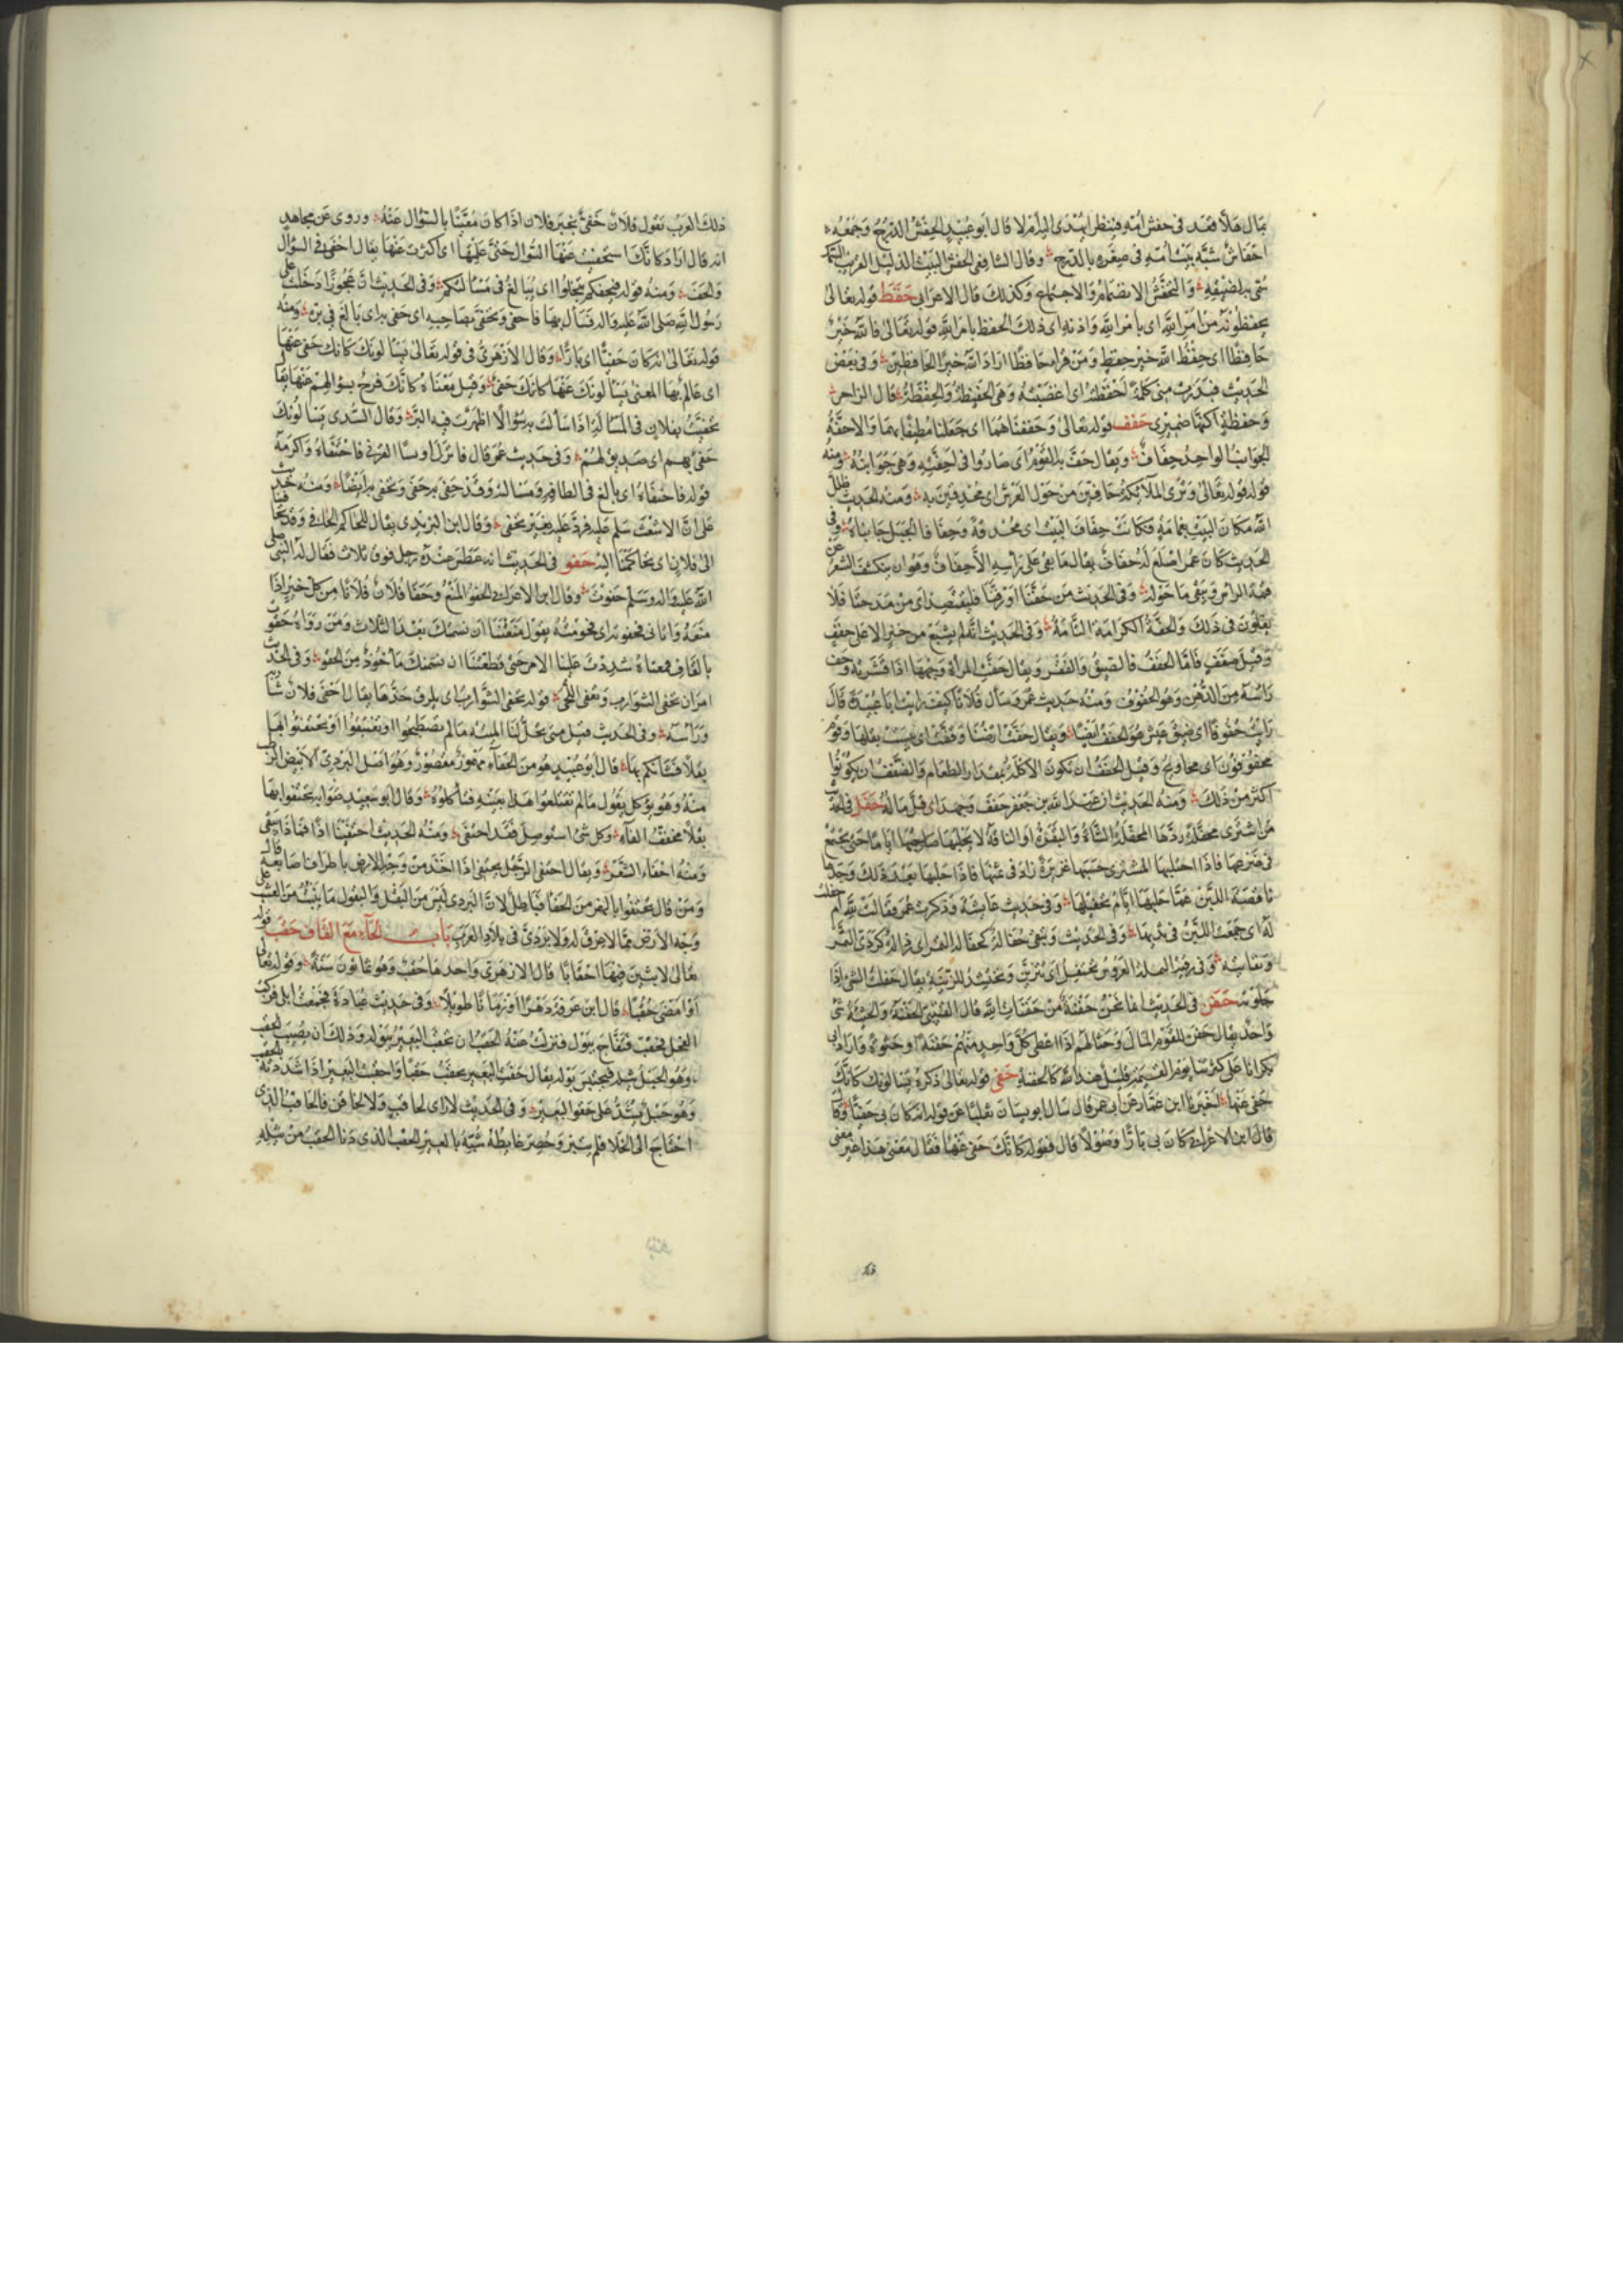 يقال هلا قعد في حفش امه فينظر ايهدى اليه ام لا قال ابو عبيد الحفش الدرج وجمعه
احفاش شبه بيت امه في صغره بالدرج وقال الشافعي الحفش البيت الذليل القريب السمك
سمي به لضيقه والتحفش الانضمام والاجتماع وكذلك قال الاعرابي حفظ قوله تعالى
يحفظونه من امر الله اى بامر الله واذنه اى ذلك الحفظ بامر الله قوله تعالى فالله خير
حافظا اى حفظ الله خير حفظ ومن قراه حافظا اراد الله خير الحافظين وفي بعض
الحديث فبدرت منى كلمة احفظته اى اغضبته وهى الحفيظة والحفظة قال الراجز
وحفظة اكنها ضميرى حفف قوله تعالى وحففناهما اى جعلنا مطيفا بهما والاحفة
الجوانب الواحد حفاف ويقال حف به القوم اى صاروا في احفته وهى جوانبه ومنه
قوله قوله تعالى وترى الملائكة حافين من حول العرش اى محدقين به ومنه الحديث ظلل
الله مكان البيت غمامة فكانت حفاف البيت اى محدقة وحفافا الجبل جانباه وفى
الحديث كان عمر اصلع له حفاف يقال ما بقى على راسه الا حفاف وهو ان ينكشف الشعر عن
قمة الراس ويبقى ما حوله وفى الحديث من حفنا او رفنا فليقتصد اى من مدحنا فلا
يغلون في ذلك والحفة الكرامة التامة وفى الحديث انه لم يشبع من خبز الا على حفف
وقيل ضفف فاما الحفف فالضيق والفقر ويقال حفت المراة وجهها اذا قشرته وحف
راسه من الدهن وهو الحفوف ومنه حديث عمر وسأل فلانا كيف رايت ابا عبيدة قال
رايت حفوفا اى ضيق عيش هو الحفف ايضا ويقال حفت ارضنا وقفت اى يبس بقلها وقوم
محفوفون اى محاويج وقيل الحفف ان تكون الاكلة بمقدار الطعام والضفف ان يكونوا
اكثر من ذلك ومنه الحديث ان عبد الله بن جعفر حفف وجهد اى قل ماله حفل في الحديث
من اشترى محفلة ردها المحفلة الشاة والبقرة او الناقة لا يحلبها صاحبها اياما حتى يجتمع
في ضرعها فاذا احتلبها المشترى حسبها غزيرة زاد في ثمنها فاذا حلبها بعد ذلك وجدها
ناقصة اللبن عما حلبها ايام تحفيلها وفى حديث عايشة وذكرت عمر فقالت لله ام حفلت
له اى جمعت اللبن في ثديها وفى الحديث وتبقى حفالة كحفالة التمر اى رذالة كردى التمر
ونفايته وفى رقية النملة العروس تحتفل اى تتزين وتحتشد للزينة يقال حفلت الشىء اذا
جلوته حفن في الحديث انما نحن حفنة من حفنات الله قال القتيبى الحفنة والحثية شىء
واحد يقال حفن للقوم المال وحثا لهم اذا اعطى كل واحد منهم حفنة او حثوة واراد ابى
بكر انا على كثرتنا يوم القيمة قليل عند الله كالحفنة حفى قوله تعالى ذكره يسالونك كانك
حفى عنها اخبرنا ابن عمار عن ابى عمر قال سال ابو يسان ثعلبا عن قوله انه كان بى حفيا وكان
قال ابن الاعرابى كان بى بارا وصولا قال فقوله كانك حفى عنها فقال معنى هذا غير معنى
ذلك العرب تقول فلان حفى بخبر فلان اذا كان معنيا بالسؤال عنه وروى عن مجاهد
انه قال اراد كانك استحفيت عنها السؤال حتى علمتها اى اكثرت عنها يقال احفى في السؤال
والحف ومنه قوله فيحفكم تبخلوا اى يبالغ في مسألتكم وفى الحديث ان عجوزا دخلت على
رسول الله صلى الله عليه واله فسأل بها فاحفى وتحفى بصاحبه اى حفى به اى بالغ في بره ومنه
قوله تعالى انه كان حفيا اى بارا وقال الازهرى في قوله تعالى يسألونك كانك حفى عنها
اى عالم بها المعنى يسألونك عنها كانك حفى وقيل معناه كانك فرح بسؤالهم عنها يقال
تحفيت بفلان في المسألة اذا سألت به سؤالا اظهرت فيه البر وقال السدى يسألونك
حفى بهم اى صديق لهم وفى حديث عمر قال فانزل اويسا القرنى فاحتفاه واكرمه
قوله فاحتفاه اى بالغ في الطافه ومسالته وقد حفى به حفى وتحفى به ايضا ومنه حديث
على ان الاشعث سلم عليه فرد عليه بغير تحفى وقال ابن اليزيدى يقال للحاكم الحافى وقد تحافينا
الى فلان اى تحاكمنا اليه حفو في الحديث انه عطس عنده رجل فوق ثلاث فقال له النبى صلى
الله عليه واله وسلم حفوت وقال ابن الاعرابى الحفو المنع وحفا فلان فلانا من كل خير اذا
منعه واتانى فحفوته اى حرمته يقول منعتنا ان نشمتك بعد الثلاث ومن رواه حقوت
بالقاف فمعناه شددت علينا الامر حتى قطعتنا ان نشمتك مأخوذ من الحقو وفى الحديث
امر ان تحفى الشوارب وتعفى اللحى قوله تحفى الشوارب اى يلزق جزها يقال احفى فلان شاربه
وراسه وفى الحديث قيل متى تحل لنا الميتة ما لم تصطبحوا او تغتبقوا او تحتفئوا بها
بقلا فشانكم بها قال ابو عبيد هو من الحفاء مهموز مقصور وهو اصل البردى الابيض الرطب
منه وهو يؤكل يقول ما لم تقتلعوا هذا بعينه فتأكلوه وقال ابو سعيد صوابه تحتفوا بها
بقلا مخفف الفاء وكل شىء استوصل فقد احتفى ومنه الحديث احتفينا اذا فماذا يبقى
ومنه احفاء الشعر ويقال احتفى الرجل يحتفى اذا اخذ من وجه الارض باطراف اصابعه قال
ومن قال تحتفئوا بالهمز من الحفا فباطل لان البردى ليس من البقل والبقول ما ينبت من العشب على
وجه الارض مما لا عرق له ولا بردى في بلاد العرب باب الحاء مع القاف حقب قوله
تعالى لابثين فيها احقابا قال الازهرى واحدها حقب وهو ثمانون سنة وقوله تعالى
او امضى حقبا قال ابن عرفة دهرا او زمانا طويلا وفى حديث عبادة فجمعت ابلى فركب
الفحل فحقب فتفاج يبول فنزلت عنه الحقب ان يحقب البعير ببوله وذلك ان يصيب الحقب
وهو الحبل ثيله فيحتبس بوله يقال حقب البعير يحقب حقبا واحقبت البعير اذا شددته بالحقب
وهو حبل يشد على حقو البعير وفى الحديث لا راى لحاقب ولا لحاقن فالحاقب الذى
احتاج الى الخلا فلم يتبرز وحصر غايطه شبه بالبعير الحقب الذى دنا الحقب من ثيله